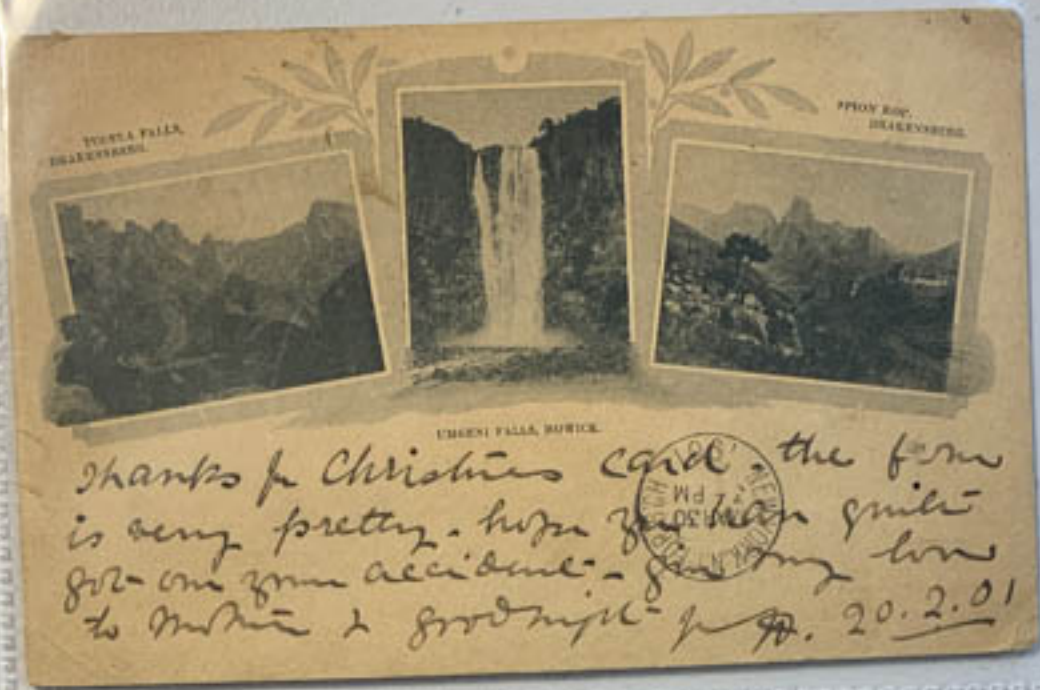 TUGELA FALLS,
DRAKENSBERG.
SPION KOP,
DRAKENSBERG.
UMGENI FALLS, HOWICK.
Thanks for Christmas card. the form
is very pretty. hope you have quite
got over your accident - give my love
to Mother & goodnight 20.2.01
NEW YORK, N.Y.
MAR 30
PM